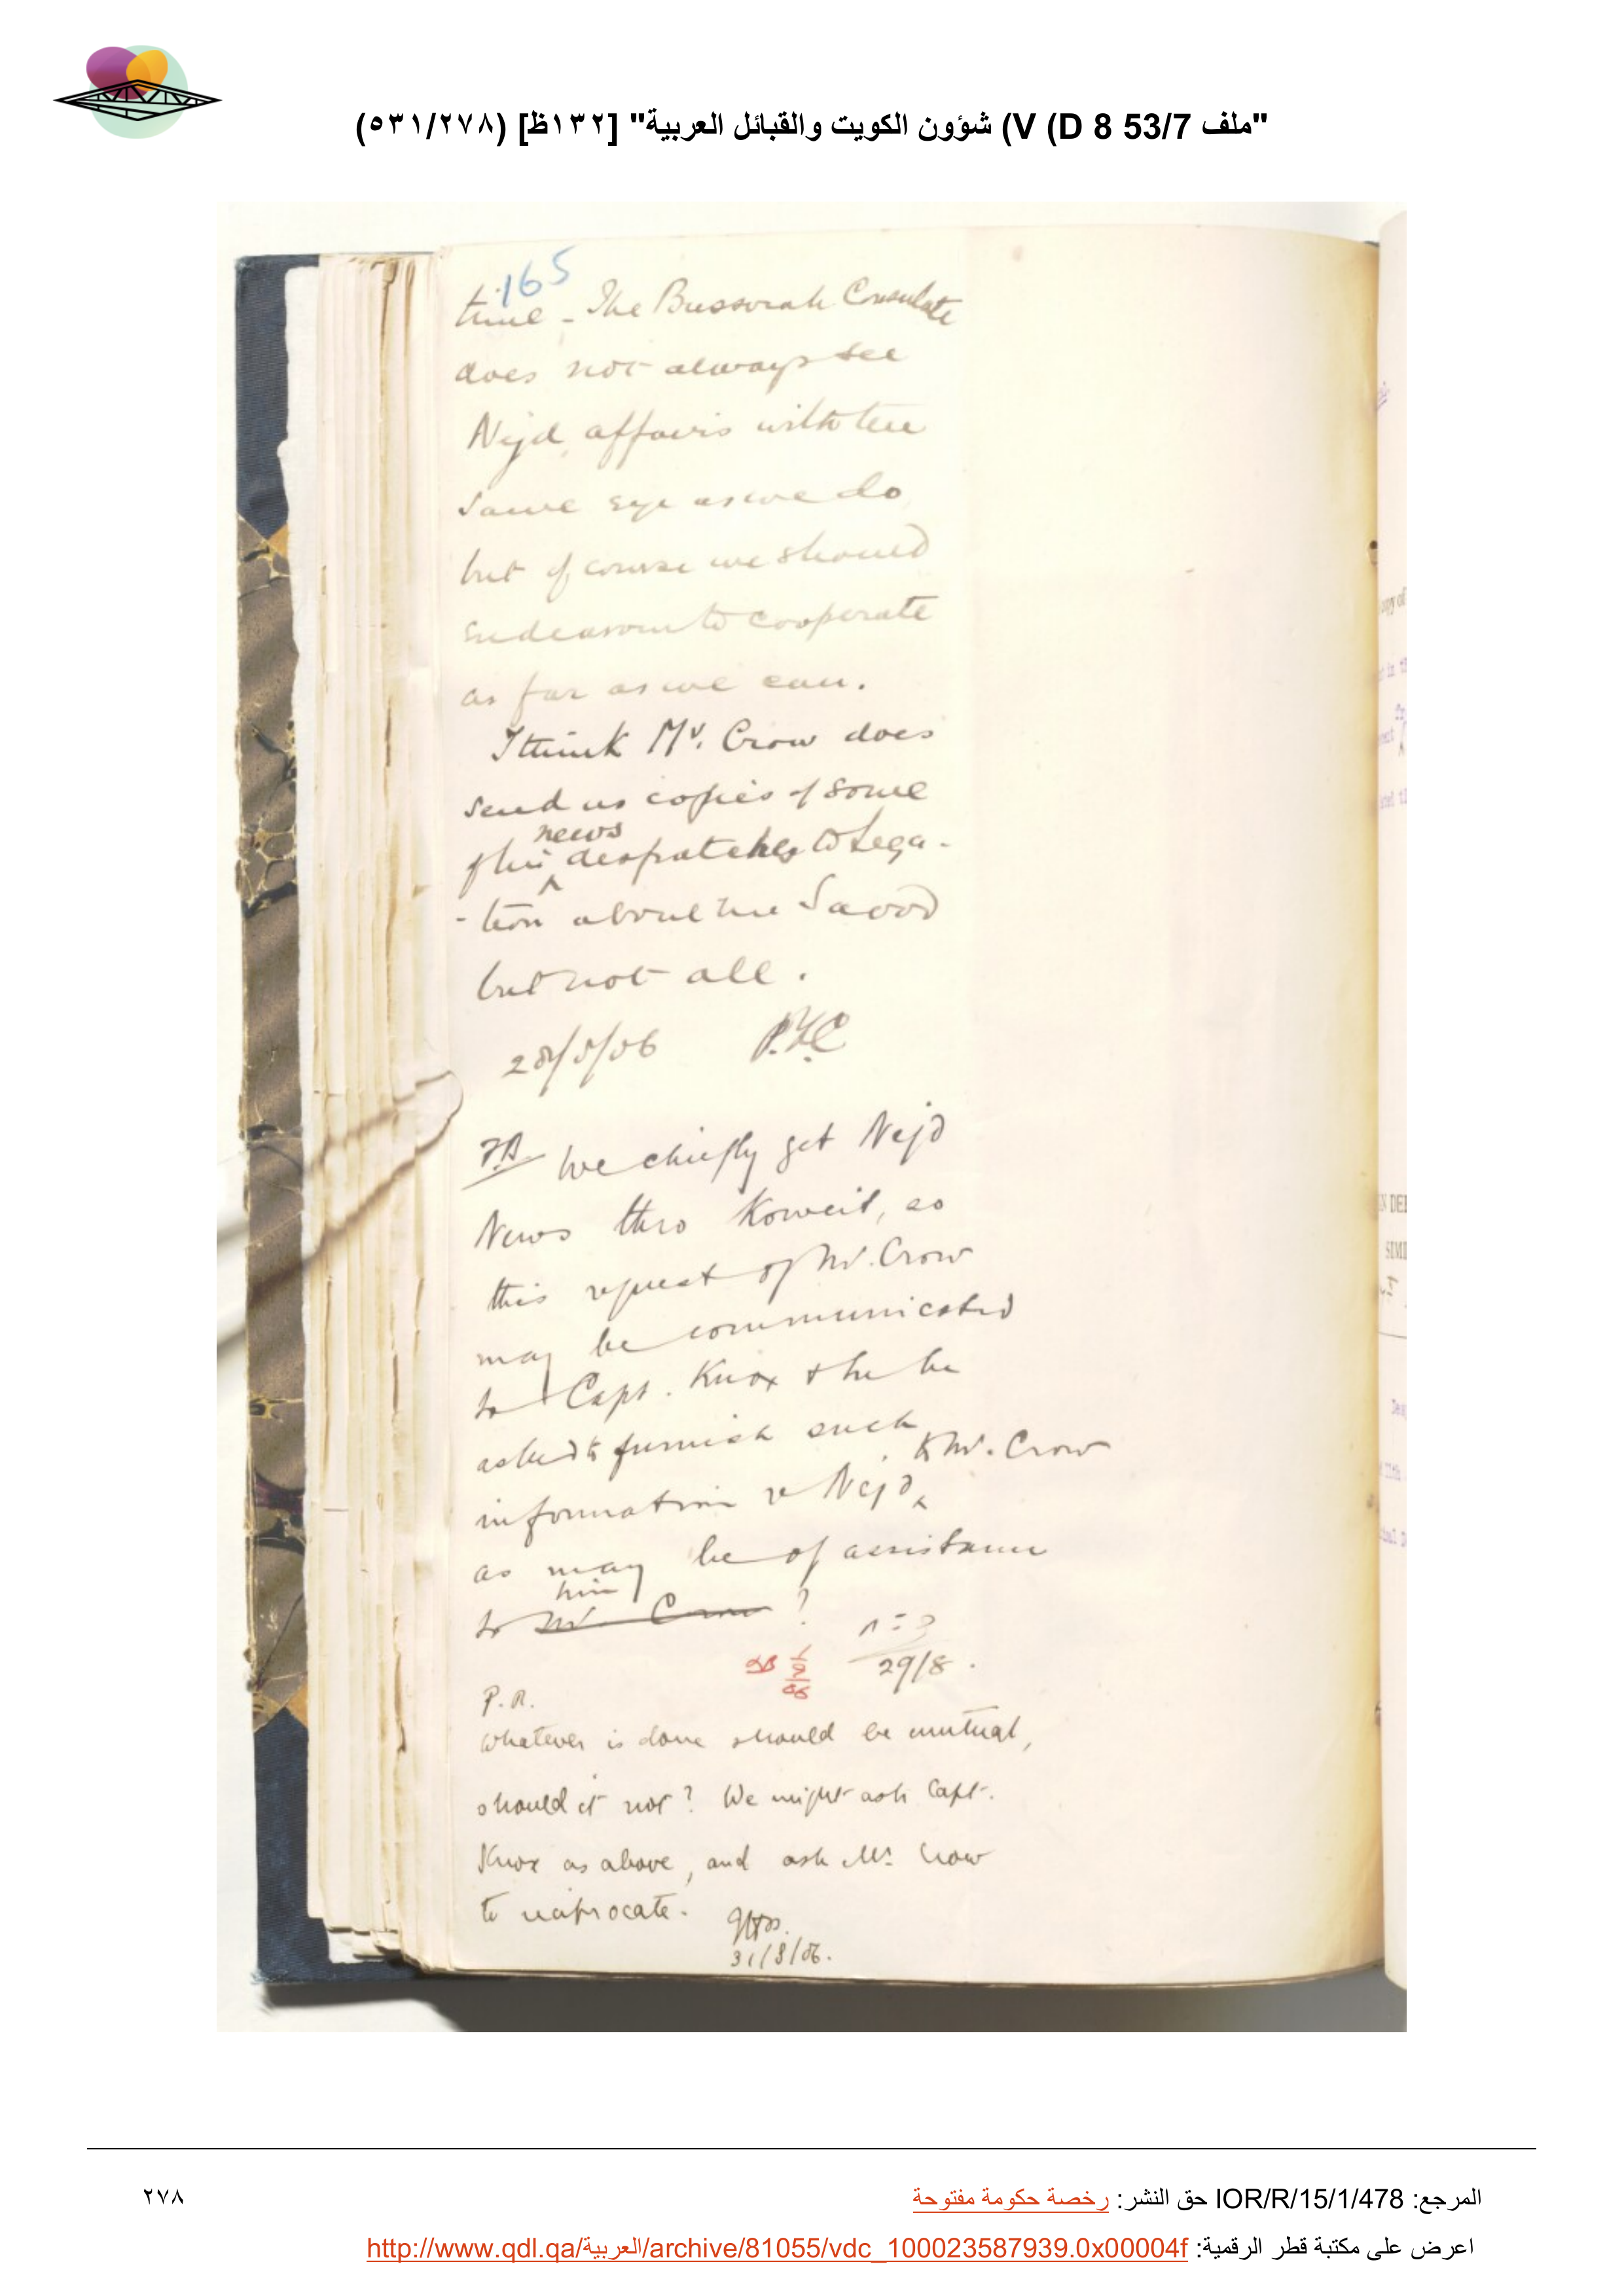 "ملف 53/7 V (D 8) شؤون الكويت والقبائل العربية" [١٣٢ظ] (٥٣١/٢٧٨)
165
time - The Bussorah Consulate
does not always see
Nejd affairs with the
same eye as we do
but of course we should
endeavour to cooperate
as far as we can.
I think Mr. Crow does
send us copies of some
of his news despatches to Lega-
-tion about Ibn Saood
but not all.
28/8/06 P.Z.C
We chiefly get Nejd
News thro Koweit, so
this request of Mr. Crow
may be communicated
to Capt. Knox & he be
asked to furnish such
information re Nejd to Mr. Crow
as may be of assistance
to him Mr. Crow ?
29/8.
P.R.
Whatever is done should be mutual,
should it not? We might ask Capt.
Knox as above, and ask Mr. Crow
to reciprocate.
31/8/06.
المرجع: IOR/R/15/1/478 حق النشر: رخصة حكومة مفتوحة
٢٧٨
اعرض على مكتبة قطر الرقمية: http://www.qdl.qa/العربية/archive/81055/vdc_100023587939.0x00004f